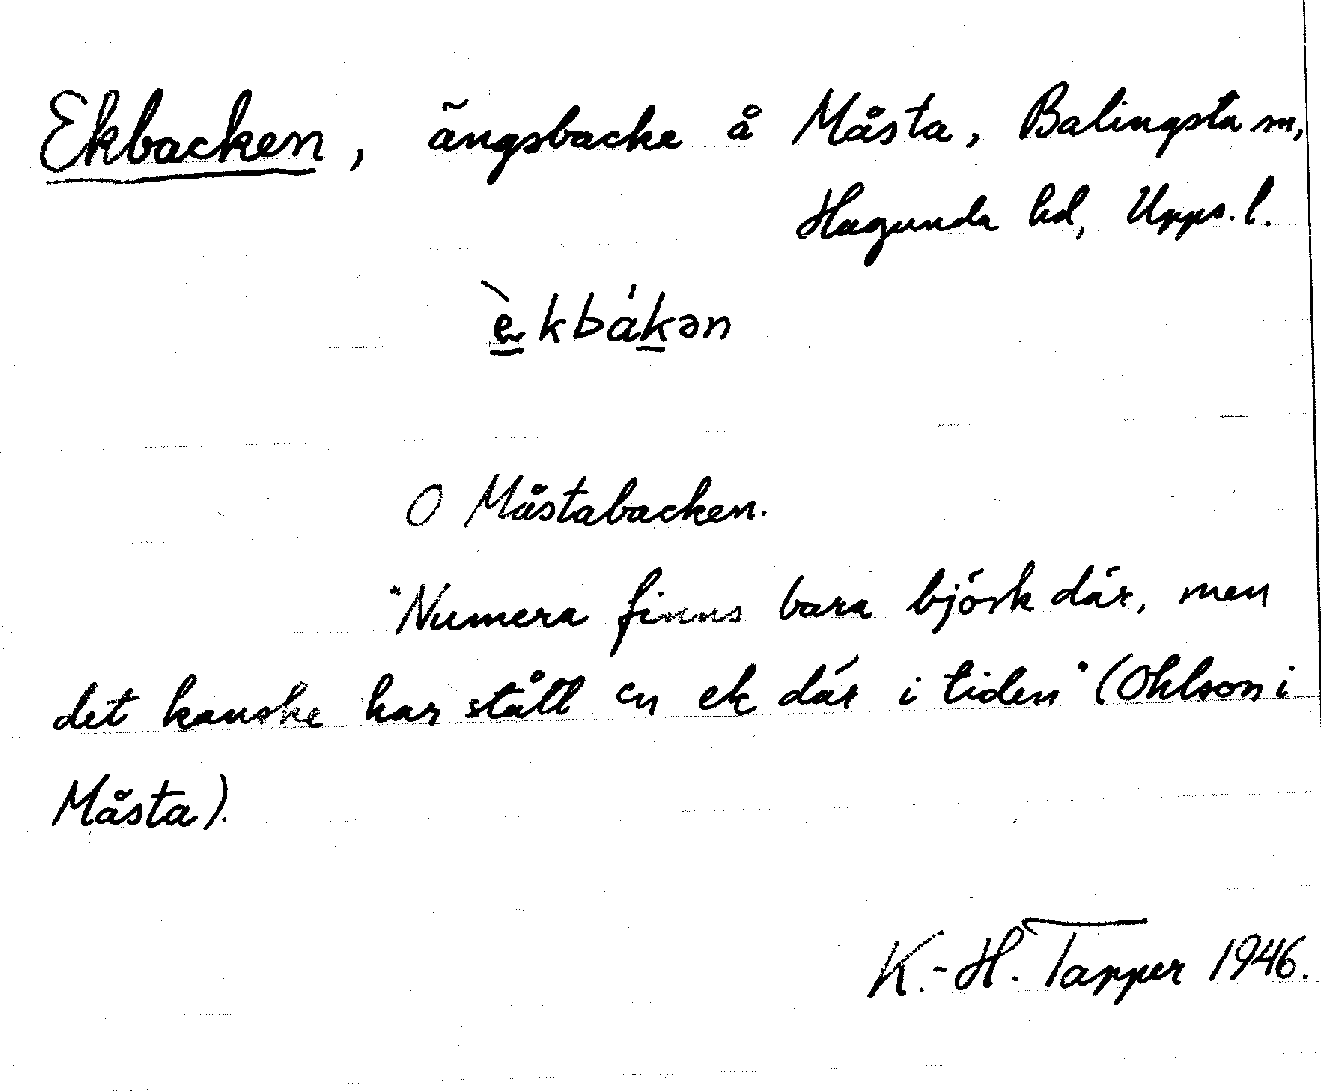 Ekbacken, ängsbacke å Måsta, Balingsta sn,
Hagunda hd, Upps. l.
èkbákən
O Måstabacken.
"Numera finns bara björk där, men
det kanske har stått en ek där i tiden" (Ohlson i
Måsta).
K.-H. Tapper 1946.